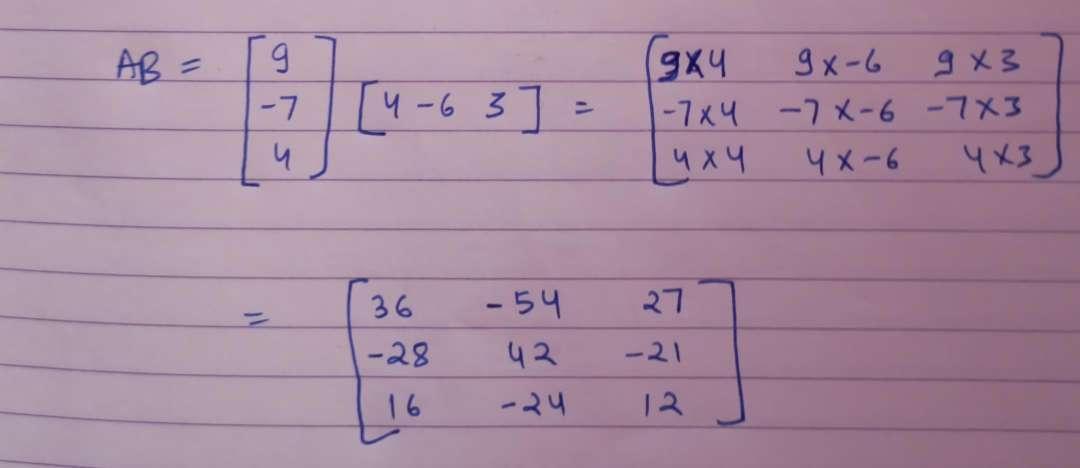 AB = [9 -7 4] [4 -6 3] = [9×4 9×-6 9×3
-7×4 -7×-6 -7×3
4×4 4×-6 4×3]
= [36 -54 27
-28 42 -21
16 -24 12]